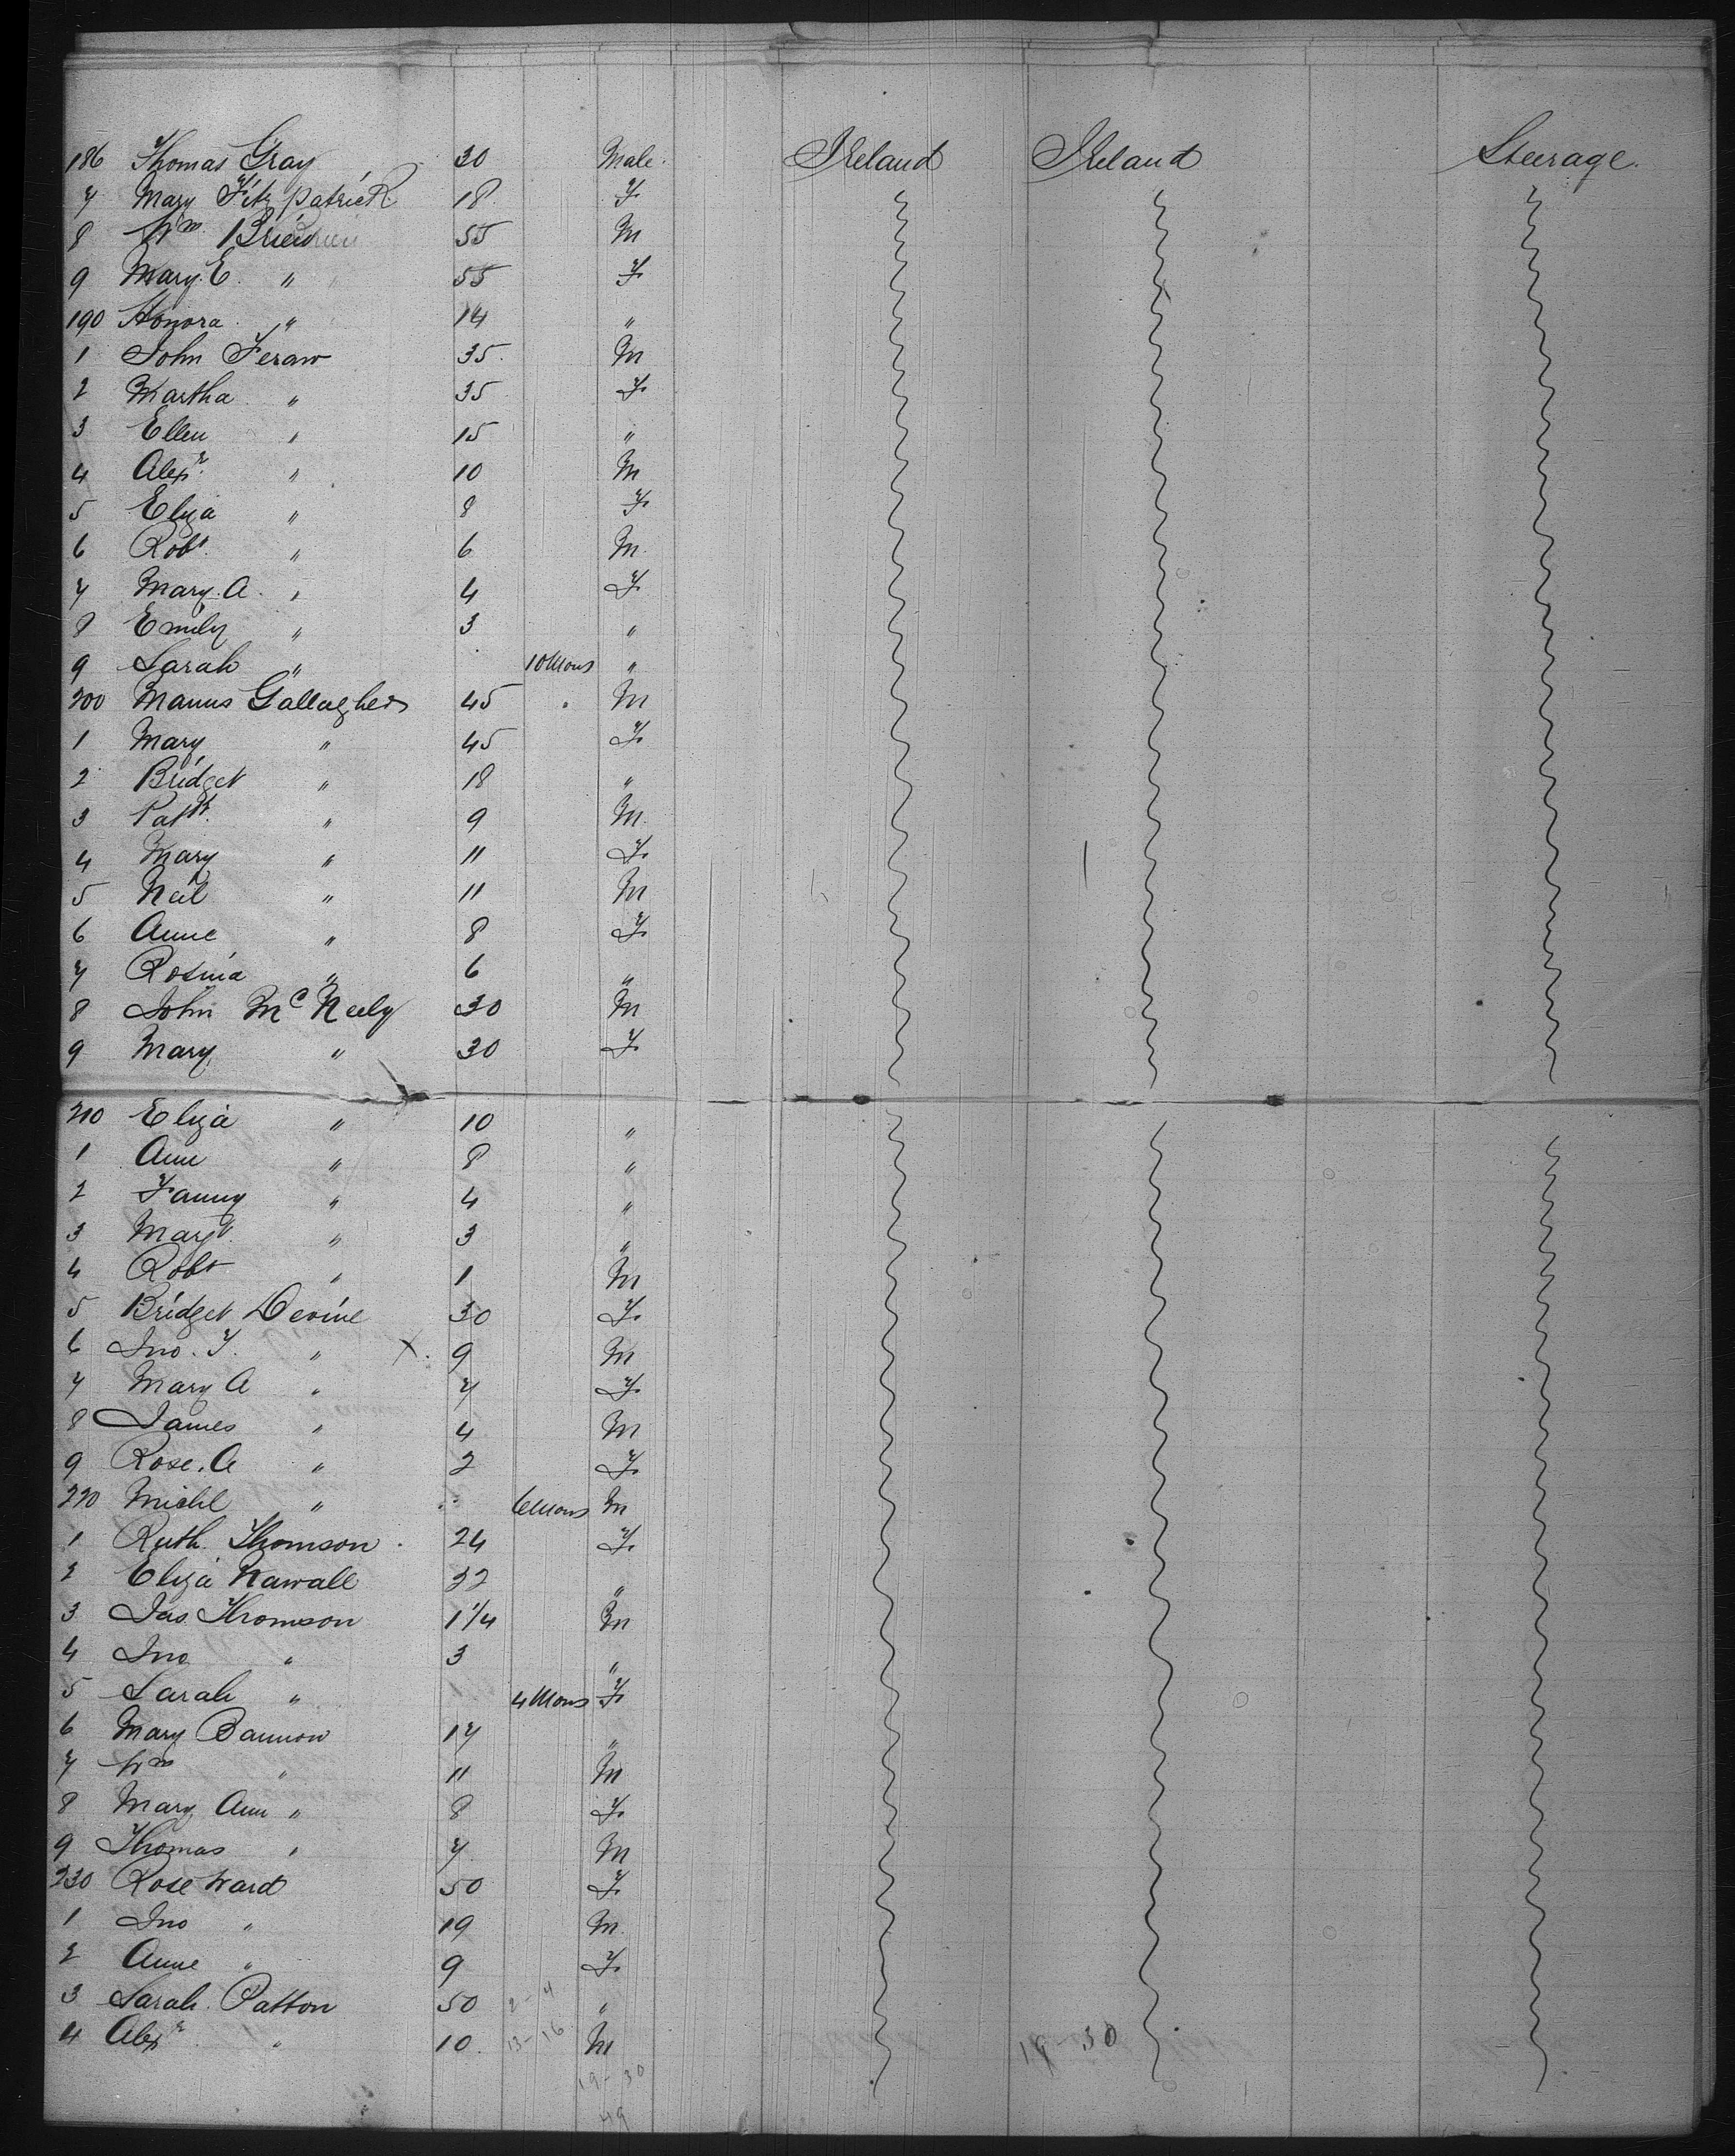 186 Thomas Gray 30 Male. Ireland Ireland Steerage.
7 Mary Fitzpatrick 18 F.
8 Wm. Brien 55 M
9 Mary. E. " 55 F
190 Honora " 14 "
1 John Feraw 35 M
2 Martha " 35 F.
3 Ellen " 15 "
4 Alexr. " 10 M
5 Eliza " 8 F.
6 Robt. " 6 M.
7 Mary. A. " 4 F.
8 Emily " 3 "
9 Sarah " 10 Mons "
200 Manus Gallagher 45 M
1 Mary " 45 F.
2 Bridget " 18 "
3 Patk. " 9 M.
4 Mary " 11 F.
5 Neil " 11 M
6 Anne " 8 F.
7 Rosina " 6 "
8 John McNeely 30 M
9 Mary " 30 F.
210 Eliza " 10 "
1 Ann " 8 "
2 Fanny " 4 "
3 Margt. " 3 "
4 Robt " 1 M
5 Bridget Devine 30 F.
6 Jno. F. " X. 9 M
7 Mary A " 7 F.
8 James " 4 M
9 Rose. A " 2 F.
220 Michl " 6 Mons M
1 Ruth. Thomson 24 F.
2 Eliza Nawall 22 "
3 Jas. Thomson 1 1/4 M
4 Jno " 3 "
5 Sarah " 4 Mons F.
6 Mary Bannon 17 "
7 Wm " 11 M
8 Mary Ann " 8 F.
9 Thomas " 7 M
230 Rose Ward 50 F.
1 Jno " 19 M.
2 Anne " 9 F.
3 Sarah. Patton 50 2-4 "
4 Alexr " 10. 13-16 M 19-30
19-30
49